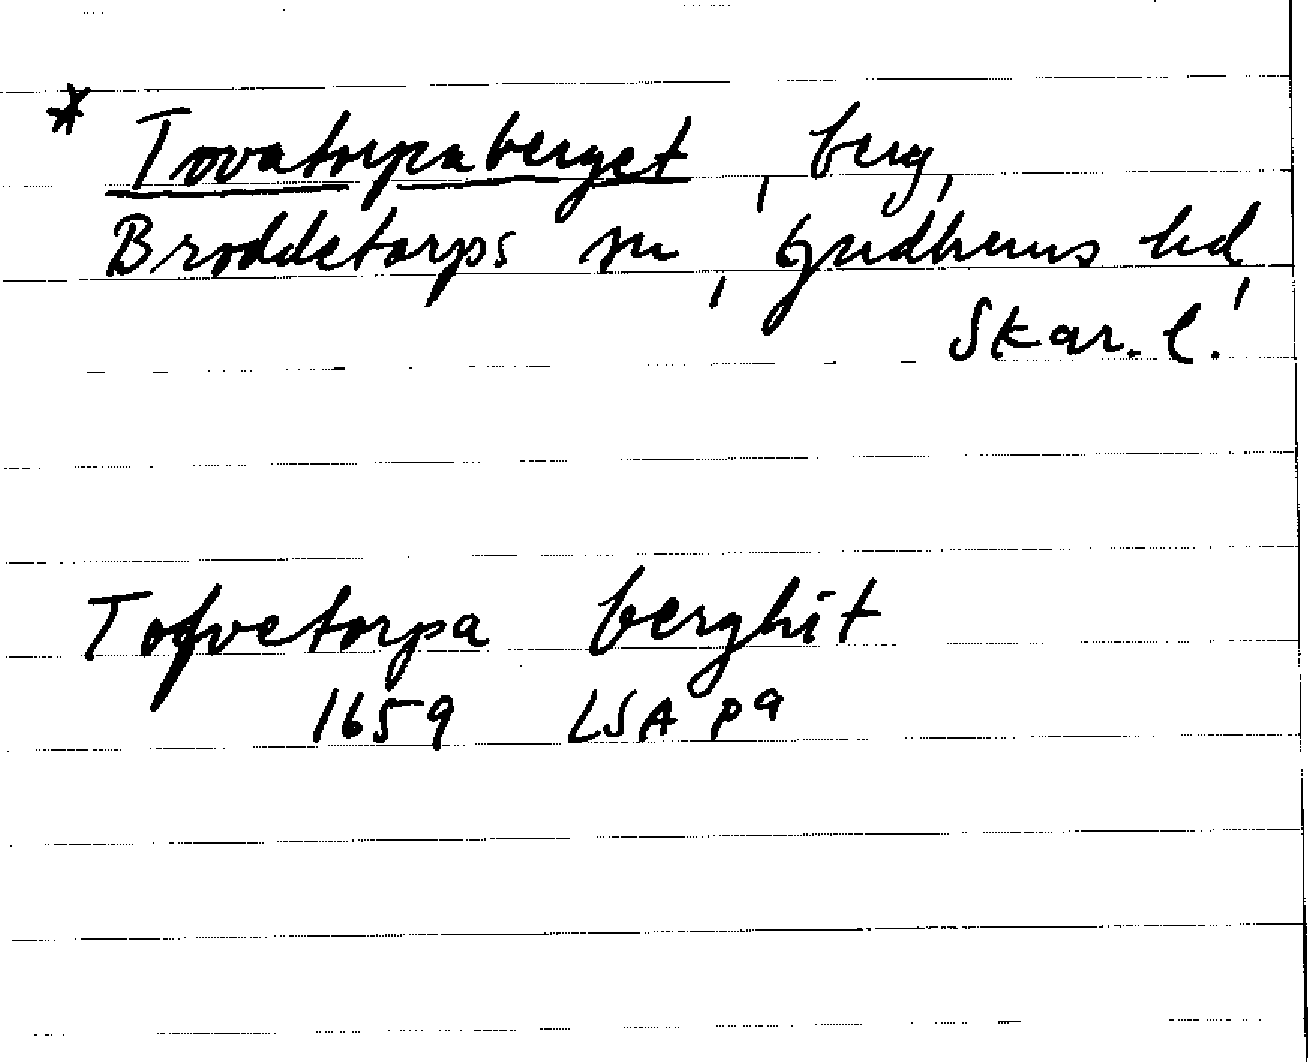 * Tovatorpaberget, berg,
Broddetorps sn, Gudhems hd,
Skar. l.
Tofvetorpa berghit
1659 LSA P9